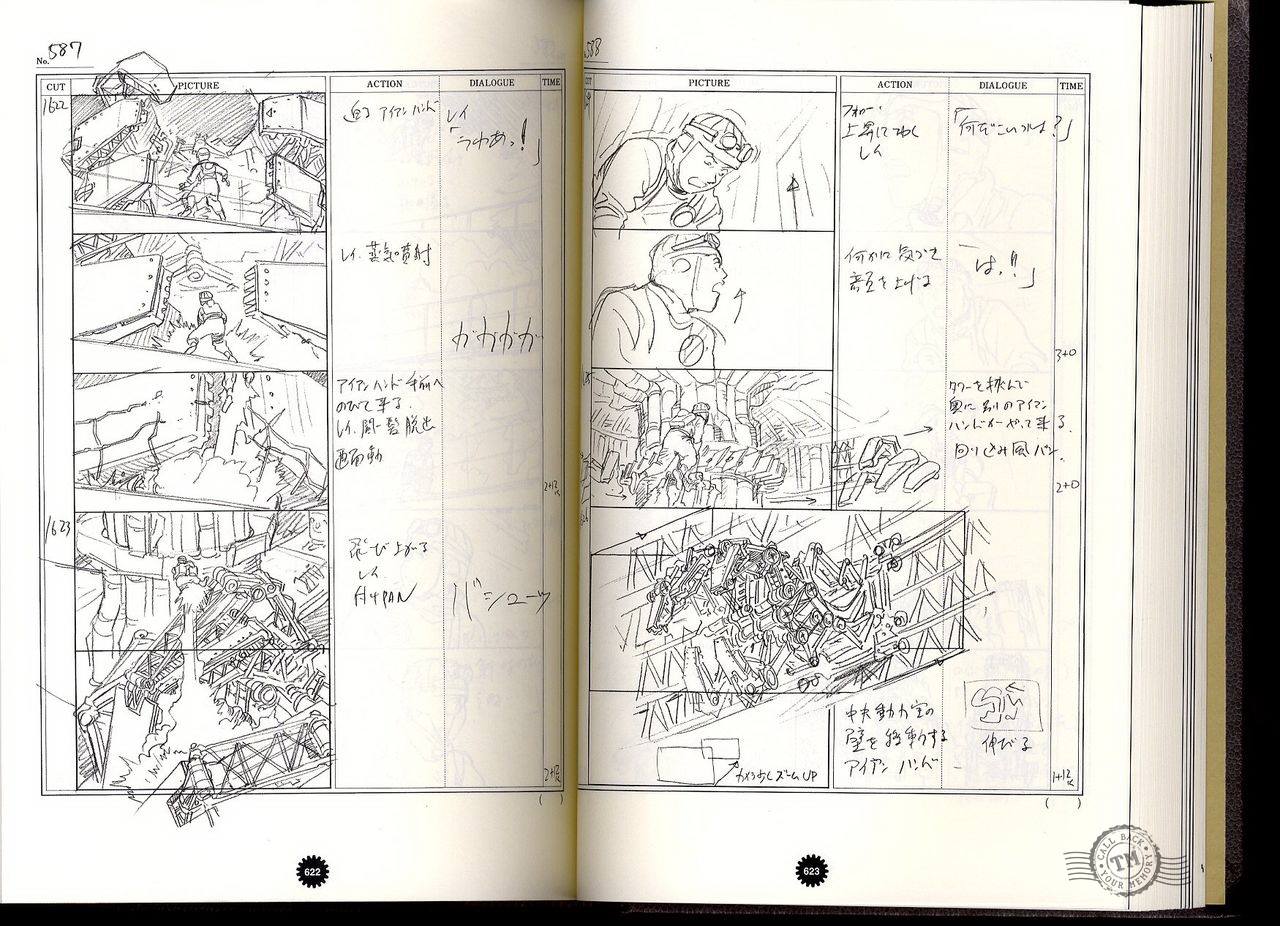 No. 587
CUT
PICTURE
ACTION
DIALOGUE
TIME
1622
迫る アイアンハンド
レイ
「うわあっ!」
レイ、蒸気噴射
ガガガガ
アイアンハンド 手前へ
のびて来る。
レイ、間一髪 脱出
画面動
2+12K
1623
飛び上がる
レイ
付PAN
バシューッ
2+12K
( )
622
588
PICTURE
ACTION
DIALOGUE
TIME
上昇してゆく
レイ
「何だこいつは?」
何かに気づき
顔を上げる
「は!!」
3+0
タワーを挟んで
奥に別のアイアン
ハンドがやって来る。
回り込み風パン。
2+0
中央動力室の
壁を移動する
アイアンハンド
伸びる
カメラ少しズームUP
1+12K
( )
623
CALL BACK
TM
YOUR MEMORY